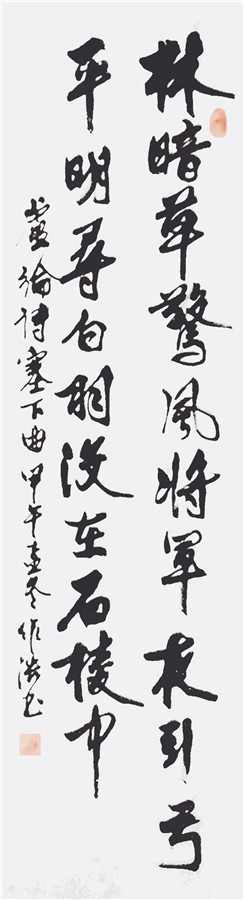 林暗草驚風將軍夜引弓
平明尋白羽沒在石棱中
盧綸詩塞下曲甲午孟冬作洪书